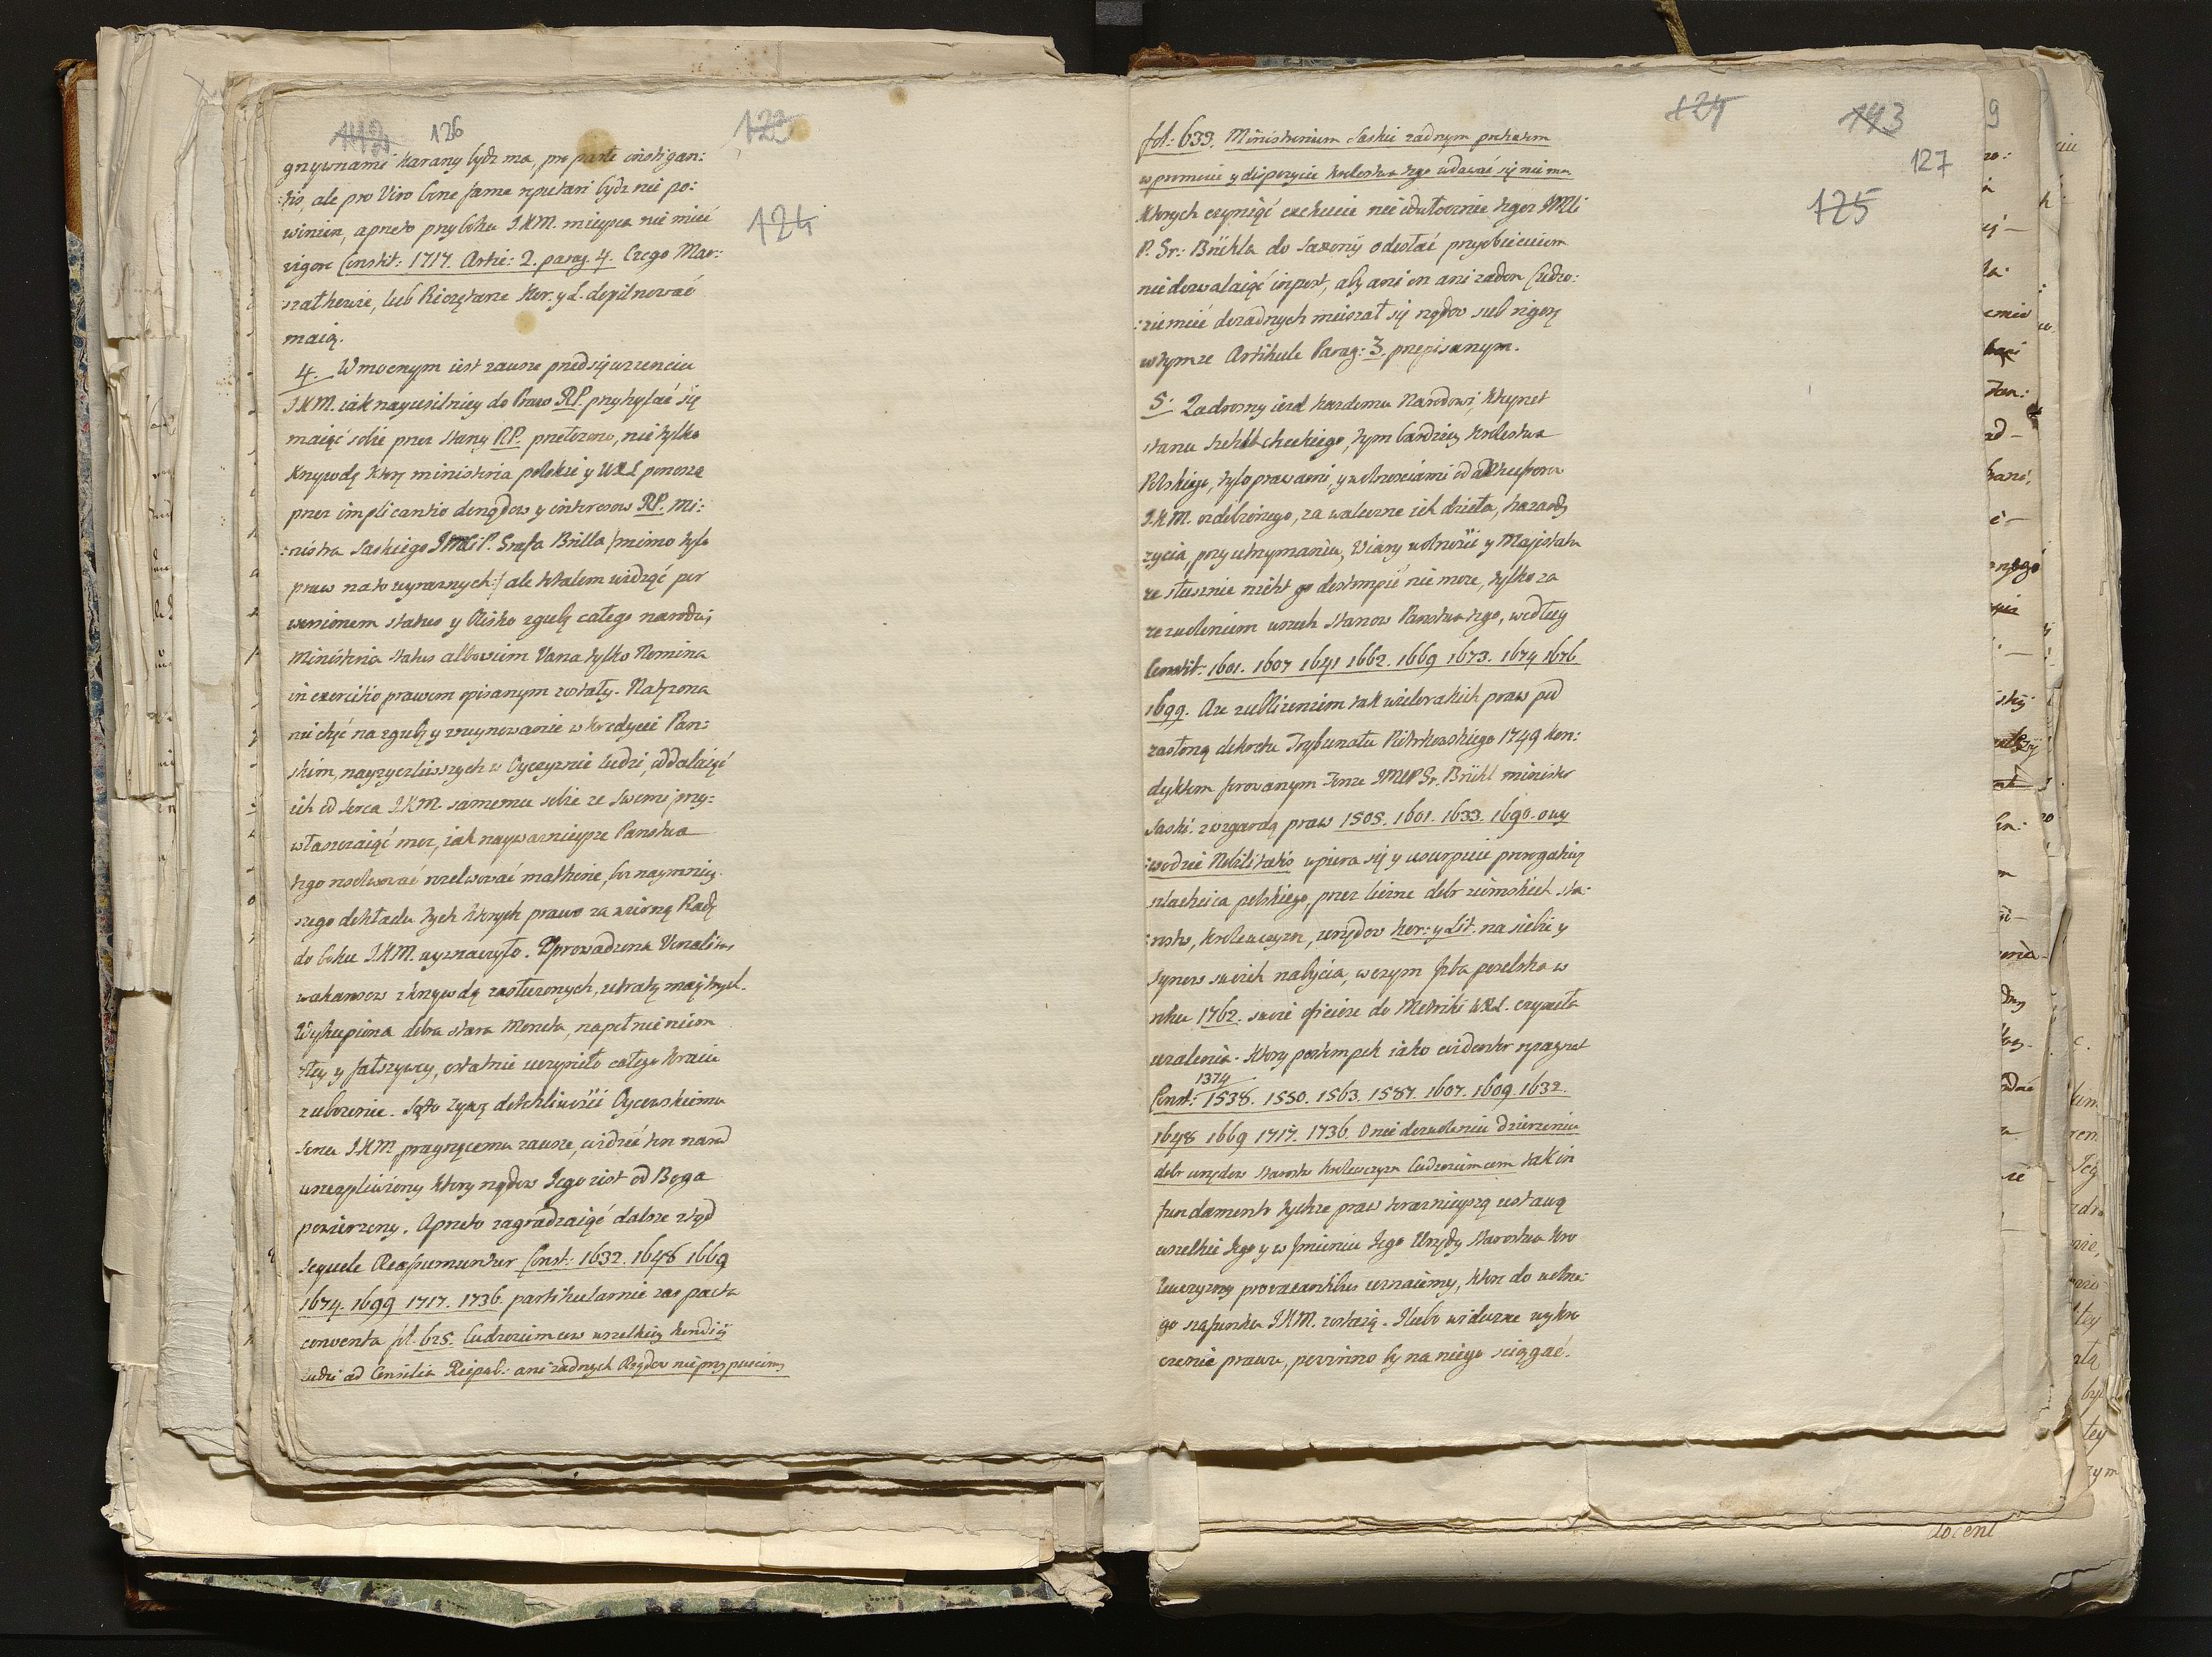 112 126 123
124
grzywnami karany bydz ma, pro parte instigan:
:tis, ale pro Viro bone fame reputari bydz nie po:
winien, apreto przyboku J.K.M. mieysca nie mieć
vigore Constit: 1717. Artic: 2. parag. 4. Czego Mar:
szałkowie, lub Pieczętarze Kor. y L. dopilnować
maią.
4. W mocnym iest zawsze przedsięwzenciu
J.K.M. iak nayusilniey do Praw RP. przychylać się
maiąć sobie przez stany RP. przełozono, nie tylko
Krzywdę którą ministria polskie y WXL ponoszą
przez implicantio do rządow y interesow RP. Mi:
:nistra Saskiego JMCi P. Grafa Brilla /:mimo tyle
praw na to wyraznych:/ ale z zalem widząć per
wersionem status y blisko zgubę całego narodu,
Ministria status albowiem Vana tylko Nomina
in exercitio prawem opisanym zostały. Natęzona
nie chęć na zgubę y zruynowanie w kredycie Pan:
skim, nayzyczliwszych w Oyczyznie ludzi, oddalaiąć
ich od serca J.K.M. samemu sobie ze swemi przy:
własczaiąć moc, iak naywaznieysze Panstwa
tego rezolwować materie, bez naymniey
szego dokładu tych których prawo za wierną Radę
do boku J.K.M. wyznaczyło. Wprowadzona Venalitas
wakansow z krzywdą zasłuzonych, utratą maiętnych.
Wykupiona dobra stara Moneta, napełnieniem
złey y fałszywey, ostatnie uczyniło całego kraiu
zubozenie. Są to zywę dotkliwości Oycowskiemu
sercu J.K.M. pragnącemu zawsze, widzieć ten narod
uszczęśliwiony który rządow Jego iest od Boga
powierzony. Apreto zagradzaiąć dalsze ztąd
sequele Reassumuntur Const: 1632. 1648 1669
1674. 1699 1717. 1736. partikularnie zas pacta
conventa fol. 625. Cudzoziemcow wszelkiey kondiÿ
ludzi ad Consilia Reipub: ani zadnych Rządow nieprzypuscimy
124 113
127
125
fol: 633. Ministerium Saskie zadnym pretextem
w promocie y disposycie Krolestwa tego wdawać się nie ma
Których czyniąć exekucie nieodwłocznie tegoz JMCi
P. Gr: Brühla do Saxonÿ odesłać przyobiecuiem
niedozwalaiąć inpost, aby ani on ani zaden Cudzo:
:ziemieć dozadnych mieszał się rządow sub rigorę
w tymze Artikule Parag: 3. przepisanym.
5. Zadrosny iest kazdemu Narodowi, Kleynot
stanu szlacheckiego, tym bardziey Krolestwa
Polskiego, tylo prawami, y wolnosciami od antecessorow
J.K.M. ozdobionego, za waleczne ich dzieła, hazardy
zycia, przy utrzymaniu, Wiary wolnosci y Majestatu
ze słusznie nicht go dostompić nie moze, tylko za
zezwoleniem wszech Stanow Panstwa tego, według
Constit: 1601. 1607 1641 1662. 1669 1673. 1674 1676
1699. Aze zubliżeniem tak wielorakich praw pod
zasłoną dekretu Trybunału Piotrkowskiego 1749 kon:
dyktem ferowanym Tenze JMCP Gr. Brühl ministr
Saski. z wzgardą praw 1505. 1601. 1633. 1690. o wy
:wodzie Nobilitatis upiera się y usurpuie prerogatiwę
szlachcica polskiego, przez liczne dobr ziemskich sta:
:rostw, krolewszczyzn, urzędow kor: y Lit. na siebie y
synow swoich nabycia, w czym Jzba poselska w
roku 1762. swoie oficiose do Metriki WXL. czyniła
uzalenia. Który postempek iako evidenter repugnat
1374
Const: 1538. 1550. 1563. 1587. 1607. 1609. 1632.
1648 1669 1717. 1736. O nie dozwoleniu dzierzenia
dobr urzędow starostw krolewszczyzn Cudzoziemcom tak in
fundamento tychze praw teraznieyszą ustawą
wszelkie Jego y w Jmieniu Jego Urzędy Starostwa kro
lewszczyzny pro vacantibus uznaiemy, które do wolne:
go szafunku J.K.M. zostaią. Jlubo widoczne wykro
czenie prawu, powinno by na niego sciągać.